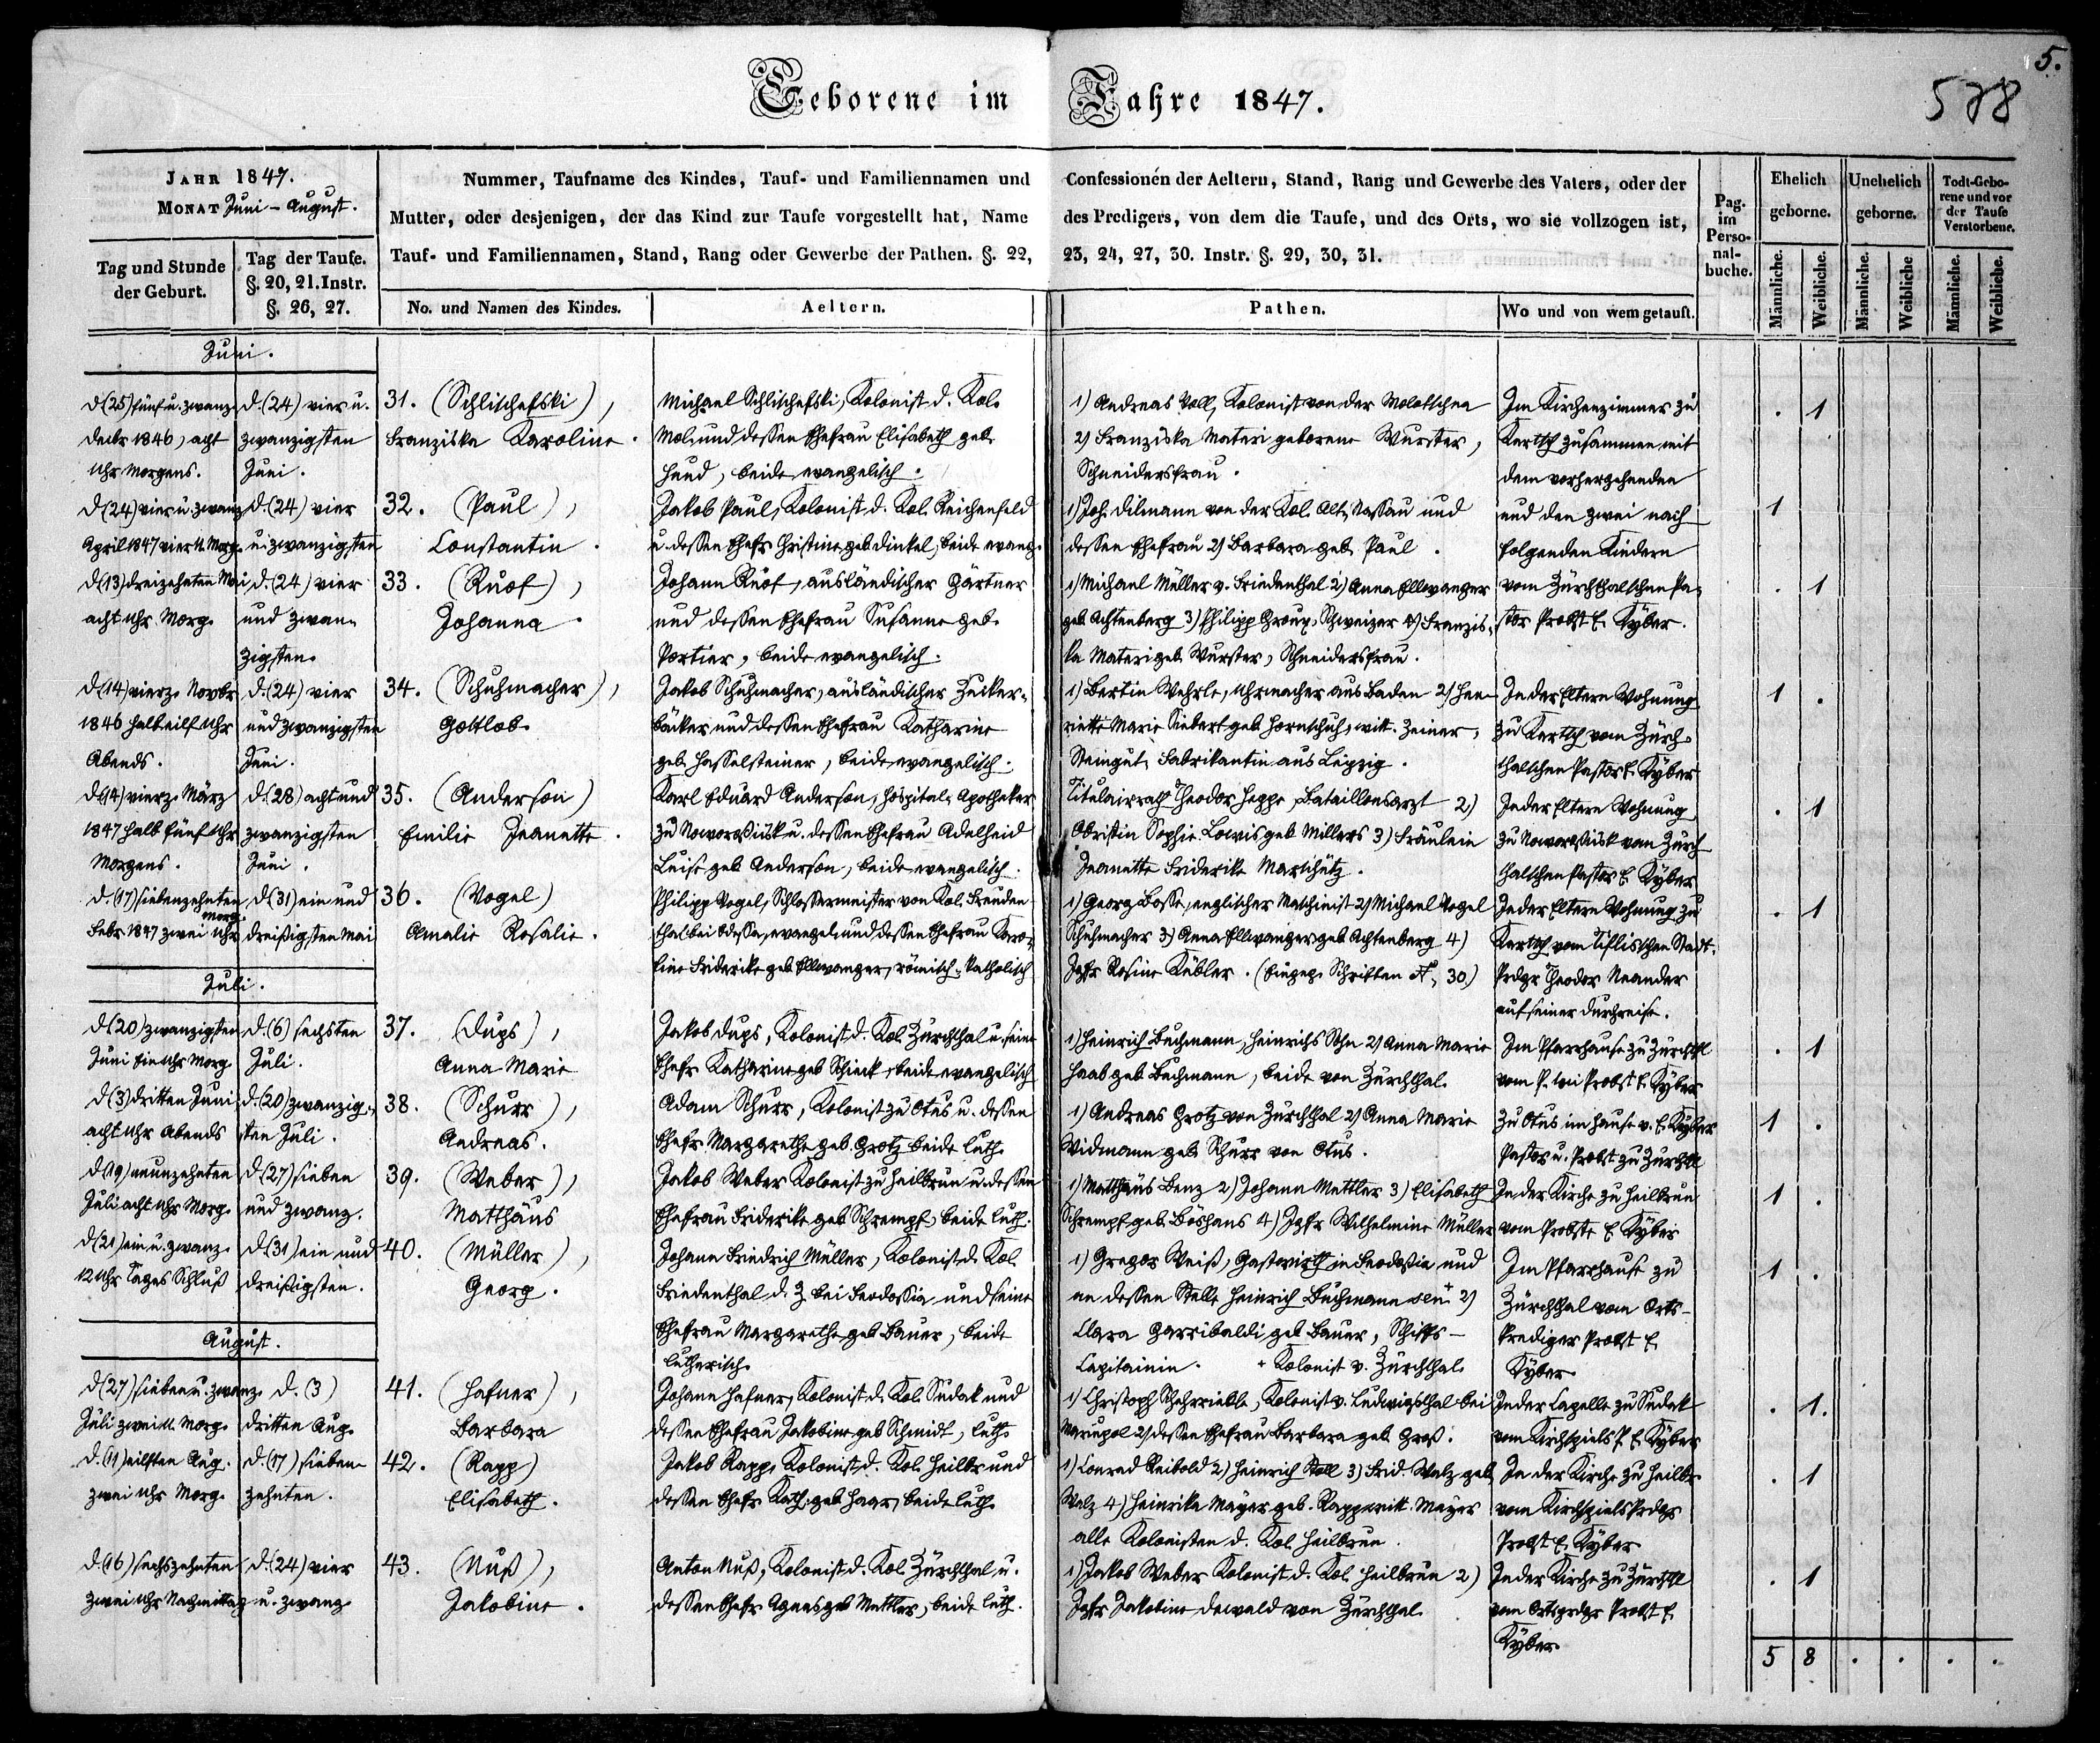 5.
578
Geborene im Jahre 1847.
JAHR 1847.
MONAT Juni - August.
Tag und Stunde
der Geburt.
Tag der Taufe.
§. 20, 21. Instr.
§. 26, 27.
Nummer, Taufname des Kindes, Tauf- und Familiennamen und
Mutter, oder desjenigen, der das Kind zur Taufe vorgestellt hat, Name
Tauf- und Familiennamen, Stand, Rang oder Gewerbe der Pathen. §. 22,
No. und Namen des Kindes.
Aeltern.
Confessionen der Aeltern, Stand, Rang und Gewerbe des Vaters, oder der
des Predigers, von dem die Taufe, und des Orts, wo sie vollzogen ist,
23, 24, 27, 30. Instr. §. 29, 30, 31.
Pathen.
Wo und von wem getauft.
Pag.
im
Perso-
nal-
buche.
Ehelich
geborne.
Unehelich
geborne.
Todt-Gebo-
rene und vor
der Taufe
Verstorbene.
Männliche.
Weibliche.
Männliche.
Weibliche
Männliche.
Weibliche.
Juni.
d (25) fünf u. zwanz.
Decbr 1846, acht
Uhr Morgens.
d. (24) vier u.
zwanzigsten
Juni.
31. (Schlischefski),
Franziska Karoline.
Michael Schlischefski, Kolonist d. Kol.
Mol. und dessen Ehefrau Elisabeth geb.
Hund, beide evangelisch.
1) Andreas Voll, Kolonist von der Molotschna
2) Franziska Materi geborene Wurster,
Schneidersfrau.
Im Kirchenzimmer zu
Kertsch zusammen mit
dem vorhergehenden
. 1
d (24) vier u. zwanz
April 1847 vier U. Morg.
d. (24) vier
u. zwanzigsten
32. (Paul),
Constantin.
Jakob Paul, Kolonist d. Kol. Reichenfeld
u. dessen Ehefr Christine geb. Dinkel, beide evang.
1) Joh. Dilmann von der Kol. Alt-Nassau und
dessen Ehefrau 2) Barbara geb. Paul.
und den zwei nach
folgenden Kindern
1
d (13) dreizehnten Mai
acht Uhr Morg.
d. (24) vier
und zwan-
zigsten.
33. (Ruof),
Johanna.
Johann Ruof, ausländischer Gärtner
und dessen Ehefrau Susanne geb.
Portier, beide evangelisch.
1) Michael Müller v. Friedenthal 2) Anna Ellwanger
geb. Achtenberg 3) Philipp Groux, Schweizer 4) Franzis-
ka Materi geb. Wurster, Schneidersfrau.
vom Zürchthalschen Pa-
stor Probst E. Kyber.
. 1
d (14) vierz. Novbr
1846 halb eilf Uhr
Abends.
d. (24) vier
und zwanzigsten
Juni.
34. (Schuhmacher),
Gottlob.
Jakob Schuhmacher, ausländischer Zucker-
bäcker und dessen Ehefrau Katharine
geb. Hasselsteiner, beide evangelisch.
1) Bertin Wehrle, Uhrmacher aus Baden 2) Hen-
riette Marie Siebert geb. Hornschuh, witt. Zeiner,
Steingut, Fabrikantin aus Leipzig.
In der Eltern Wohnung
zu Kertsch vom Zürch-
thalschen Pastor E. Kyber
1 .
d (14) vierz. März
1847 halb fünf Uhr
Morgens.
d. (28) acht und
zwanzigsten
Juni.
35. (Anderson)
Emilie Jeanette.
Karl Eduard Anderson, Hospital-Apotheker
zu Noworossiisk u. dessen Ehefrau Adelheid
Luise geb. Anderson, beide evangelisch.
Titulairrath Theodor Heppe, Bataillonsarzt 2)
Obristin Sophie Lowis geb. Millers 3) Fräulein
Jeanette Friderike Marschütz.
In der Eltern Wohnung
zu Noworossiisk vom Zürch
thalschen Pastor E. Kyber
. 1
d. (17) siebenzehnten
Febr 1847 zwei Uhr Morg.
d (31) ein und
dreißigsten Mai
36. (Vogel)
Amalie Rosalie.
Philipp Vogel, Schlossermeister von Kol. Freuden-
thal bei Odessa, evangel. und dessen Ehefrau Karo-
line Friderike geb. Ellwanger, römisch-katholisch
1) Georg Bosse, englischer Maschinist 2) Michael Vogel
Schuhmacher 3) Anna Ellwanger geb. Achtenberg 4)
Jgfr Rosine Kübler. (Eingeg. Schriften No. 30.)
In der Eltern Wohnung zu
Kertsch vom Tiflisschen Stadt-
Prdgr Theodor Neander
auf seiner Durchreise.
. 1
Juli.
d (20) zwanzigsten
Juni Ein Uhr Morg.
d. (6) sechsten
Juli.
37. (Dups),
Anna Marie
Jakob Dups, Kolonist d. Kol. Zürchthal u. seine
Ehefr. Katharine geb. Schieck, beide evangelisch
1) Heinrich Buchmann, Heinrichs Sohn 2) Anna Marie
Haab geb. Buchmann, beide von Zürchthal.
Im Pfarrhause zu Zürchthl
vom Probst E. Kyber
. 1
d (3) dritten Juni
acht Uhr Abends
d. (20) zwanzig-
sten Juli.
38. (Schurr),
Andreas.
Adam Schurr, Kolonist zu Otus u. dessen
Ehefr. Margarethe geb. Grotz beide luth.
1) Andreas Grotz von Zürchthal 2) Anna Marie
Widmann geb. Schurr von Otus.
Zu Otus im Hause v. E. Kyber
Pastor u. Probst zu Zürchthl
1 .
d (19) neunzehnten
Juli acht Uhr Morg.
d (27) sieben
und zwanz.
39. (Weber),
Matthäus
Jakob Weber Kolonist zu Heilbrun u. dessen
Ehefrau Friderike geb. Schrempf, beide luth.
1) Matthäus Benz 2) Johann Mettler 3) Elisabeth
Schrempf geb. Böshans 4) Jgfr Wilhelmine Müller
In der Kirche zu Heilbrun
vom Probste E. Kyber
1 .
d (21) ein u. zwanz.
12 Uhr Tages Schluß
d (31) ein und
dreißigsten.
40. (Müller),
Georg.
Johann Friedrich Müller, Kolonist d. Kol.
Friedenthal d. Z. bei Feodossia und seine
Ehefrau Margarethe geb. Bauer, beide
lutherisch.
1) Gregor Weiß, Gastwirth in Feodossia und
an dessen Stelle Heinrich Buchmann sen + 2)
Clara Garribaldi geb. Bauer, Schiffs-
Capitainin. + Kolonist v. Zürchthal.
Im Pfarrhause zu
Zürchthal vom Orts-
Prediger Probst E.
Kyber.
1 .
August.
d (27) sieben u. zwanz.
Juli zwei U. Morg.
d. (3)
dritten Aug.
41. (Hafner),
Barbara
Johann Hafner, Kolonist d. Kol. Sudak und
dessen Ehefrau Jakobine geb. Schmidt, luth.
1) Christoph Scherrieble, Kolonist v. Ludwigsthal bei
Mariupol 2) dessen Ehefrau Barbara geb. Groß.
In der Capelle zu Sudak
vom Kirchspiels P. E. Kyber
. 1.
d. (11) eilften Aug.
zwei Uhr Morg.
d. (17) sieben-
zehnten.
42. (Rapp)
Elisabeth.
Jakob Rapp, Kolonist d. Kol. Heilbr und
dessen Ehefr. Kath. geb. Haar, beide luth.
1) Conrad Reibold 2) Heinrich Stoll 3) Frid. Walz geb.
Walz 4) Heinrika Mayer geb. Rapp witt. Mayer
alle Kolonisten d. Kol. Heilbrun.
In der Kirche zu Heilbr.
vom Kirchspiels Prdgr
Probst E. Kyber
. 1
d. (16) sechszehnten
zwei Uhr Nachmittag
d. (24) vier
u. zwanz.
43. (Nuß),
Jakobine.
Anton Nuß, Kolonist d. Kol. Zürchthal, u.
dessen Ehefr. Agnes geb. Mettler, beide luth.
1) Jakob Weber Kolonist d. Kol. Heilbrun 2)
Jgfr Jakobine Dewald von Zürchthal.
In der Kirche zu Zürchthl
vom Ortsprdgr Probst E.
Kyber.
. 1
5 8 . . . .